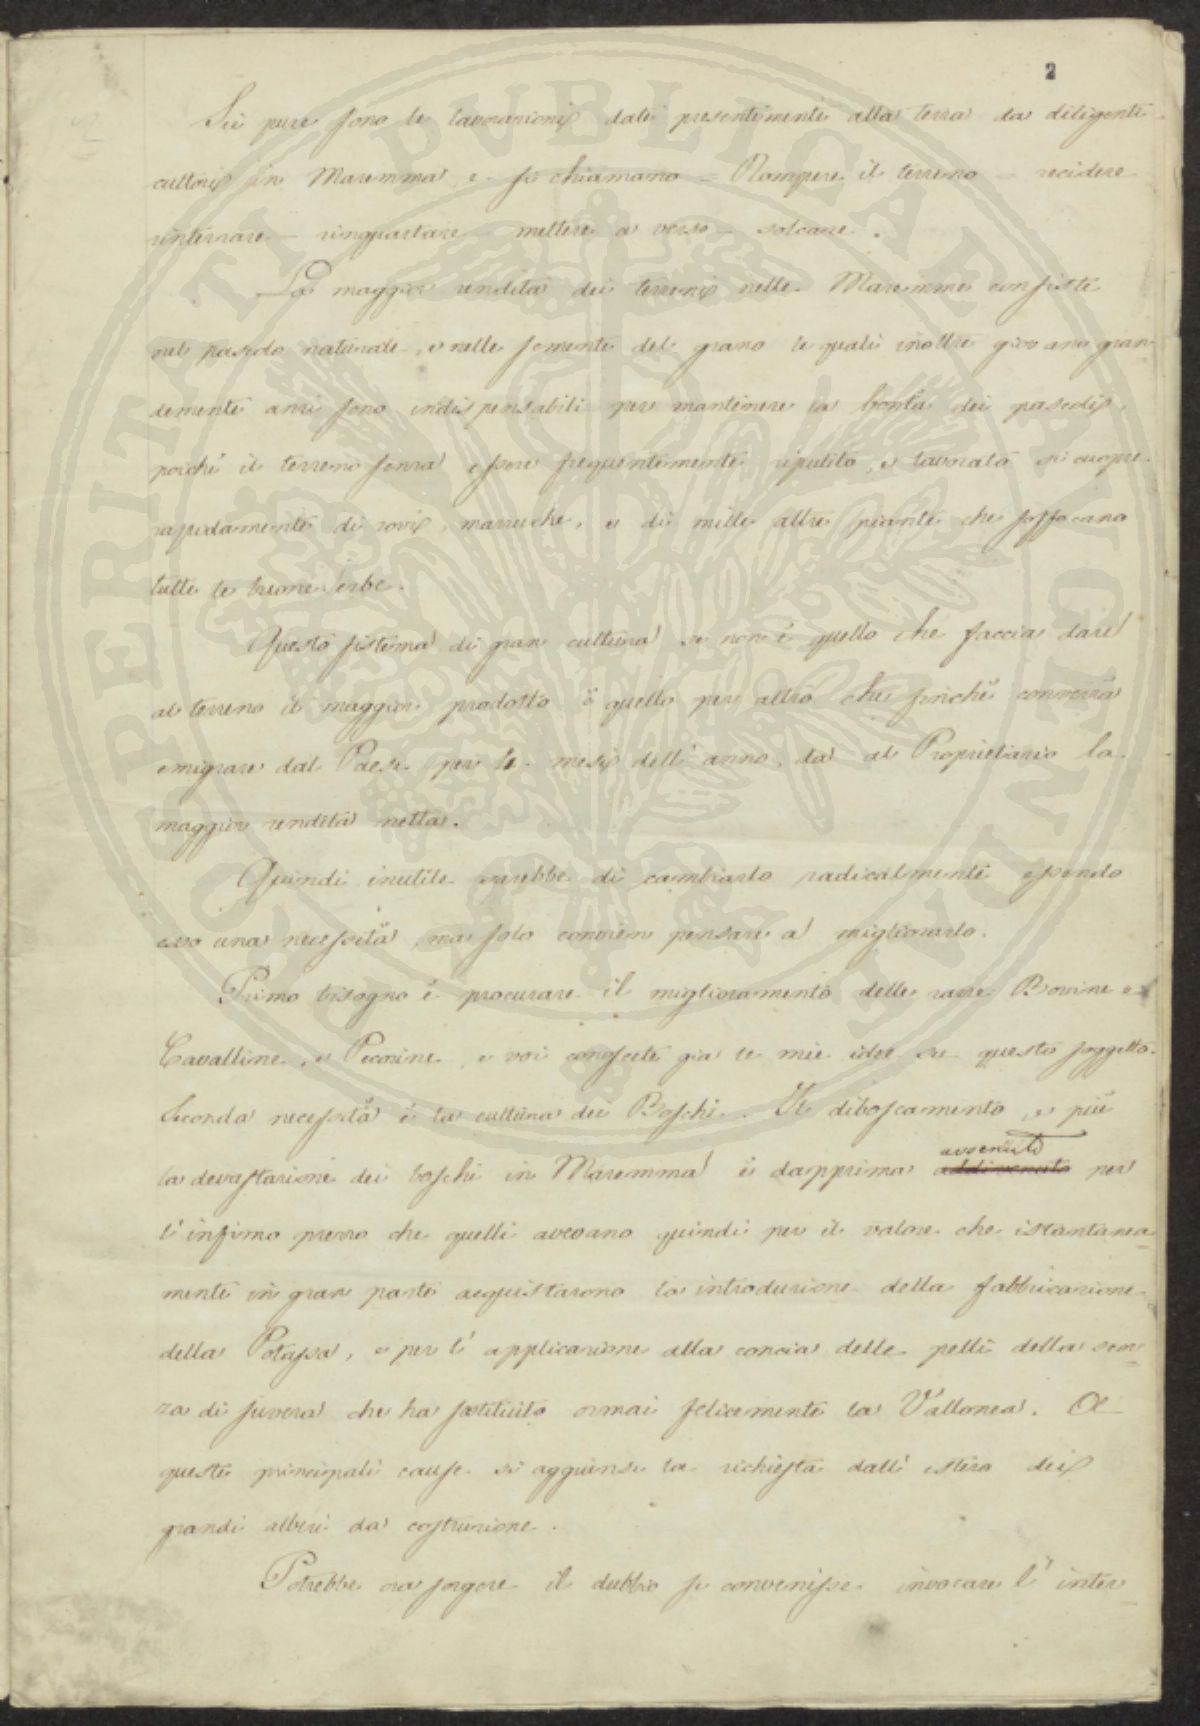 2
Sei pure sono le lavorazioni date presentemente alla terra da diligenti
cultori in Maremma e si chiamano = Rompere il terreno – recidere
rinterrare – rinquartare – mettere a verso – solcare.
La maggior rendita dei terreni nelle Maremme consiste
nel pascolo naturale, e nelle semente del grano le quali inoltre giovano gran
demente anzi sono indispensabili per mantenere la bontà dei pascoli,
poichè il terreno senza essere frequentemente ripulito, e lavorato si cuopre
rapidamente di rovi, marruche, e di mille altre piante che soffocano
tutte le buone erbe.
Questo sistema di gran cultura se non è quello che faccia dare
al terreno il maggior prodotto è quello per altro che finchè converrà
emigrare dal Paese per 4 mesi dell'anno, dà al Proprietario la
maggior rendita netta.
Quindi inutile sarebbe di cambiarlo radicalmente essendo
esso una necessità, ma solo convien pensare a migliorarlo.
Primo bisogno è procurare il miglioramento delle razze Bovine e
Cavalline, e Pecorine, e voi conoscete già le mie idee su questo soggetto.
Seconda necessità è la cultura dei Boschi. Il diboscamento, e più
la devastazione dei boschi in Maremma è dapprima addivenuto avvenuto per
l'infimo prezzo che quelli avevano quindi per il valore che istantanea-
mente in gran parte acquistarono la introduzione della fabbricazione
della Potassa, e per l'applicazione alla concia delle pelli della scor-
za di suvera che ha sostituito ormai felicemente la Vallonea. A
queste principali cause si aggiunse la richiesta dall'estero dei
grandi alberi da costruzione.
Potrebbe ora sorgere il dubbio se convenisse invocare l'inter-